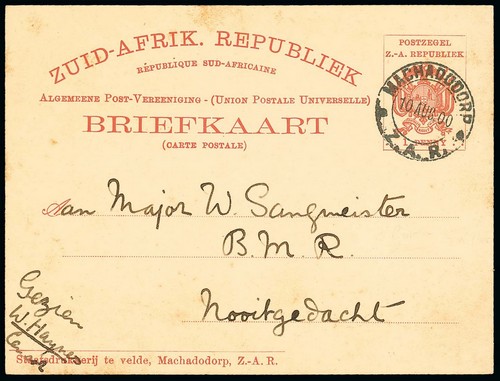 ZUID-AFRIK. REPUBLIEK
RÉPUBLIQUE SUD-AFRICAINE
ALGEMEENE POST-VEREENIGING - (UNION POSTALE UNIVERSELLE)
BRIEFKAART
(CARTE POSTALE)
POSTZEGEL
Z.-A. REPUBLIEK
MACHADODORP
10 AUG 00
Z.A.R.
Aan Major W. Sangmeister
B. M. R.
Nooitgedacht
Gezien
W. Haynes
Censor
Staatsdrukkerij te velde, Machadodorp, Z.-A. R.